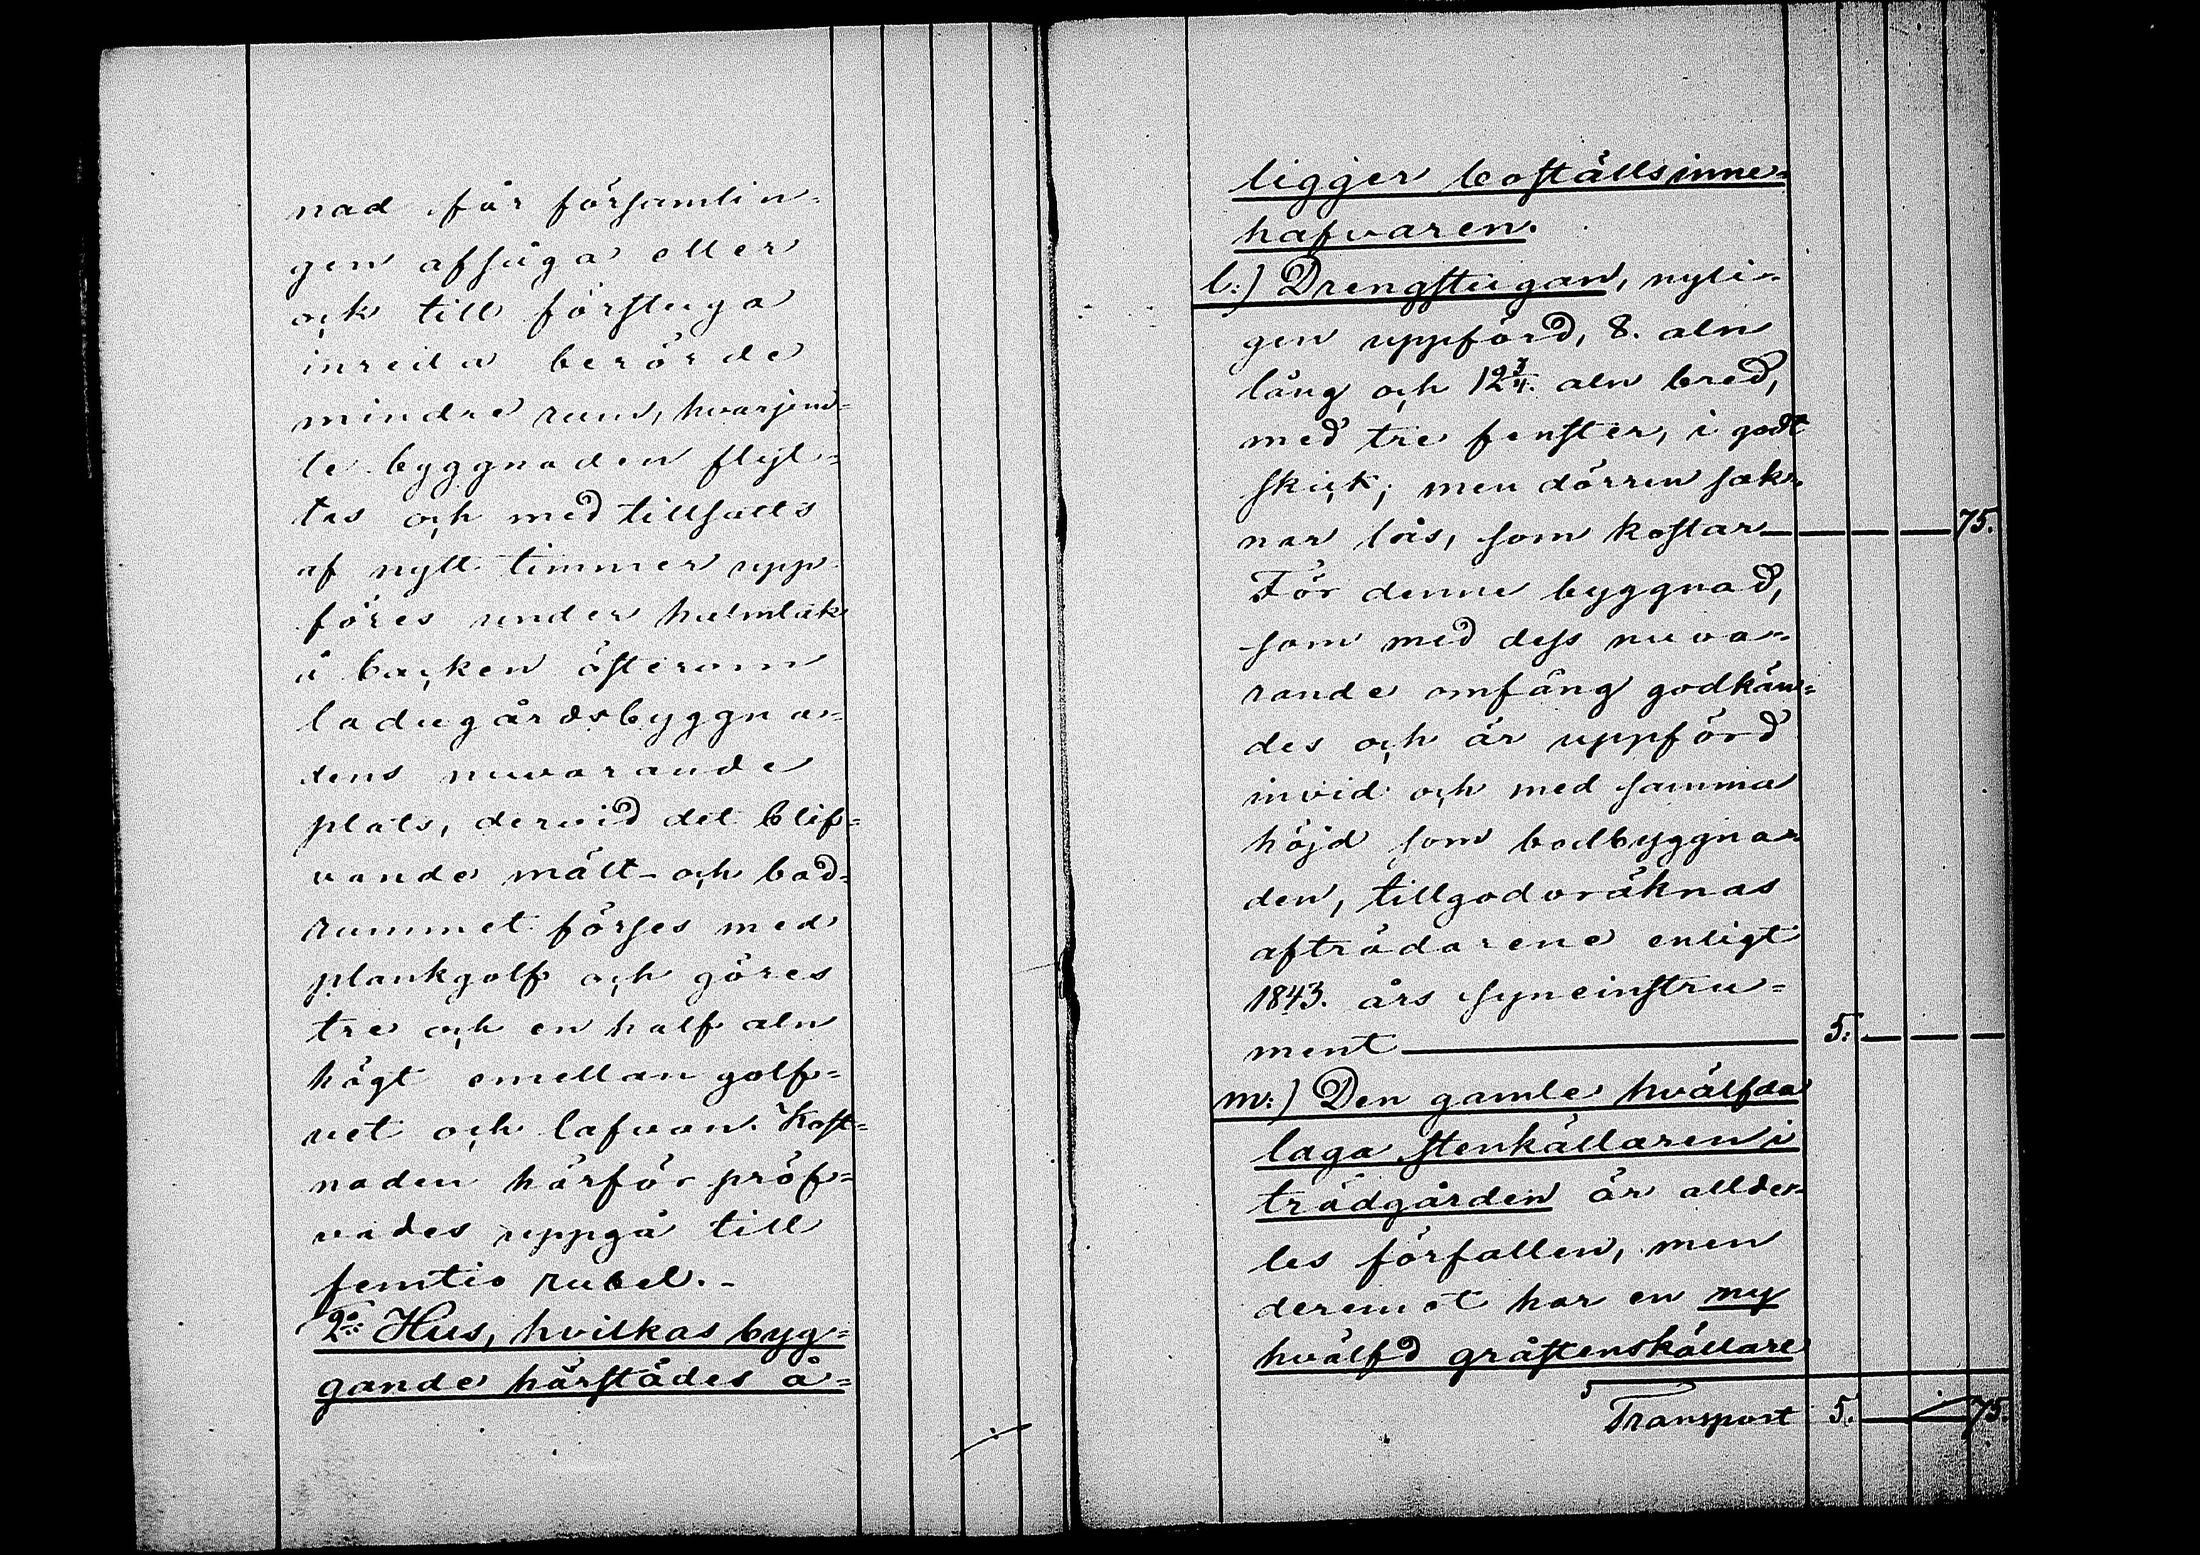 nad får församlin-
gen afsåga eller
ock till förstuga
inreda berörde
mindre rum, hvarjem-
te byggnaden flyt-
tas och med tillsatts
af nytt timmer upp-
föres under halmtak
i backen österom
ladugårdsbyggna-
dens nuvarande
plats, dervid det blif-
vande mält- och bad-
rummet förses med
plankgolf och göres
tre och en half aln
högt emellan golf-
vet och lafvan. Kost-
naden härför pröf-
vades uppgå till
femtio rubel.-
2:o Hus, hvilkas byg-
gande härstädes å-
ligger boställsinne-
hafvaren.
l:) Drengstugan, nyli-
gen uppförd, 8. aln
lång och 12 3/4. aln bred,
med tre fenster, i godt
skick; men dörren sak-
nar lås, som kostar — — — 75.
För denne byggnad,
som med dess nuva-
rande omfång godkän-
des och är uppförd
invid och med samma
höjd som bodbyggna-
den, tillgodoräknas
afträdarene enligt
1843. års syneinstru-
ment — 5. — — —
m:) Den gamle hvälfda
laga stenkällaren i
trädgården är allde-
les förfallen, men
deremot har en ny
hvälfd gråstenskällare
Transport 5. — — 75.